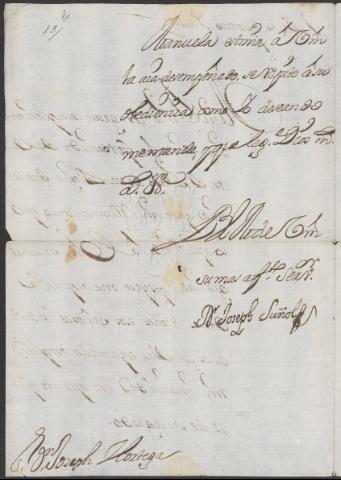 13
Manuela estima á Vm
la aia desempeñado, se repite á su
obediencia, como Yo deseando
me mande, y que le g.e Dios m.
a.s
BLM de Vm
su mas af.to Serv.r
D.r Joseph Suñol
S.r Dn Joseph Hortega